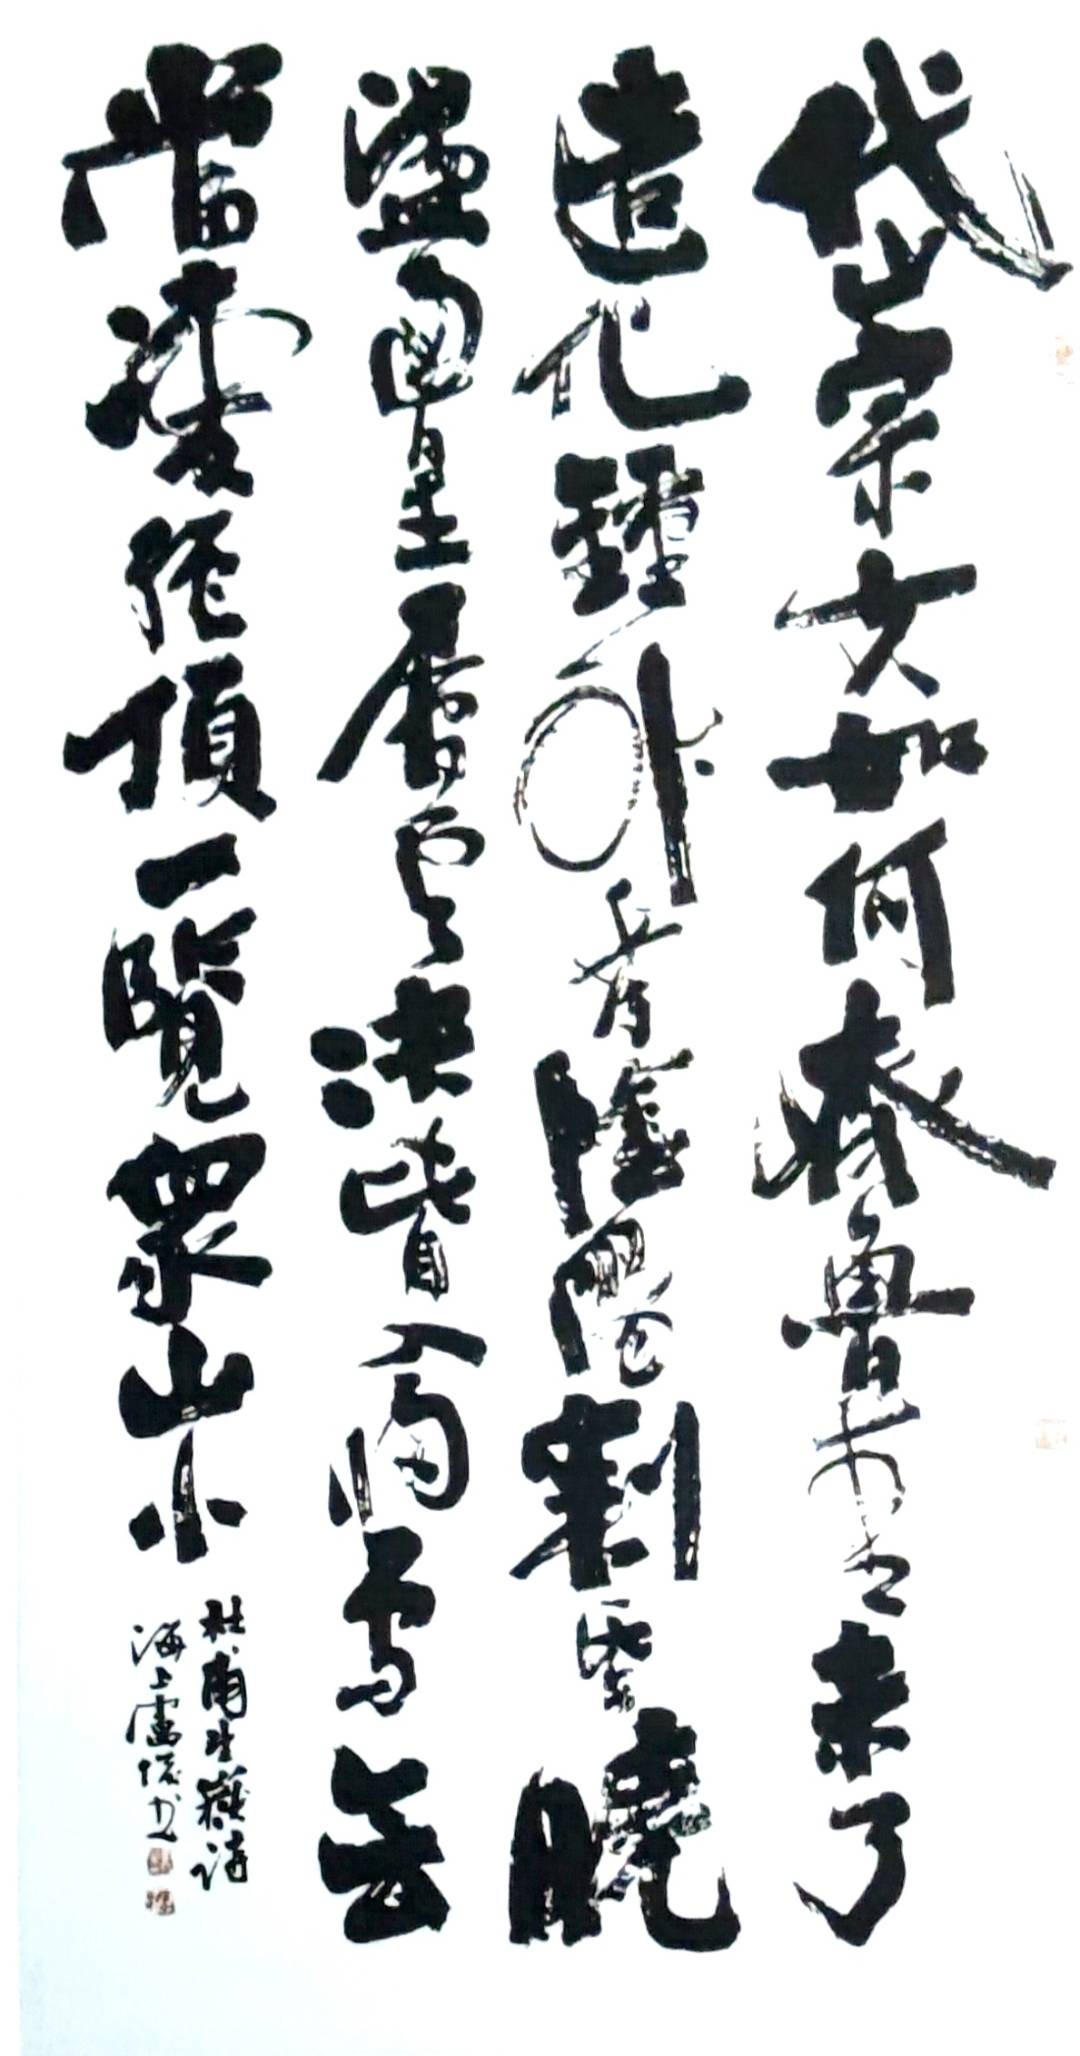 岱宗夫如何齊魯青未了
造化鍾神秀陰陽割昏曉
盪胸生層云決眥入歸鳥會
當凌絕頂一覽眾山小
杜甫望嶽詩
海上盧书